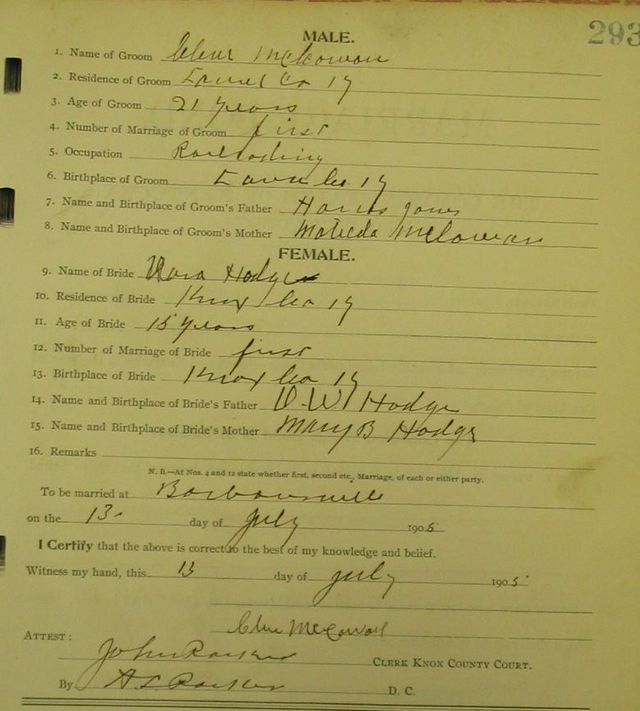 293
MALE.
1. Name of Groom McCowan
2. Residence of Groom Laurel Co Ky
3. Age of Groom 21 years
4. Number of Marriage of Groom first
5. Occupation Railroading
6. Birthplace of Groom Laurel Co Ky
7. Name and Birthplace of Groom's Father Jones
8. Name and Birthplace of Groom's Mother Matilda McCowan
FEMALE.
9. Name of Bride Hodge
10. Residence of Bride Knox Co Ky
11. Age of Bride years
12. Number of Marriage of Bride first
13. Birthplace of Bride Knox Co Ky
14. Name and Birthplace of Bride's Father W Hodge
15. Name and Birthplace of Bride's Mother Mary B Hodge
16. Remarks
N. B.—At Nos. 4 and 12 state whether first, second etc., Marriage, of each or either party.
To be married at Barbourville
on the 13 day of July 1905
I Certify that the above is correct to the best of my knowledge and belief.
Witness my hand, this 13 day of July 1905
McCowan
ATTEST:
John Parker CLERK KNOX COUNTY COURT.
By Parker D. C.